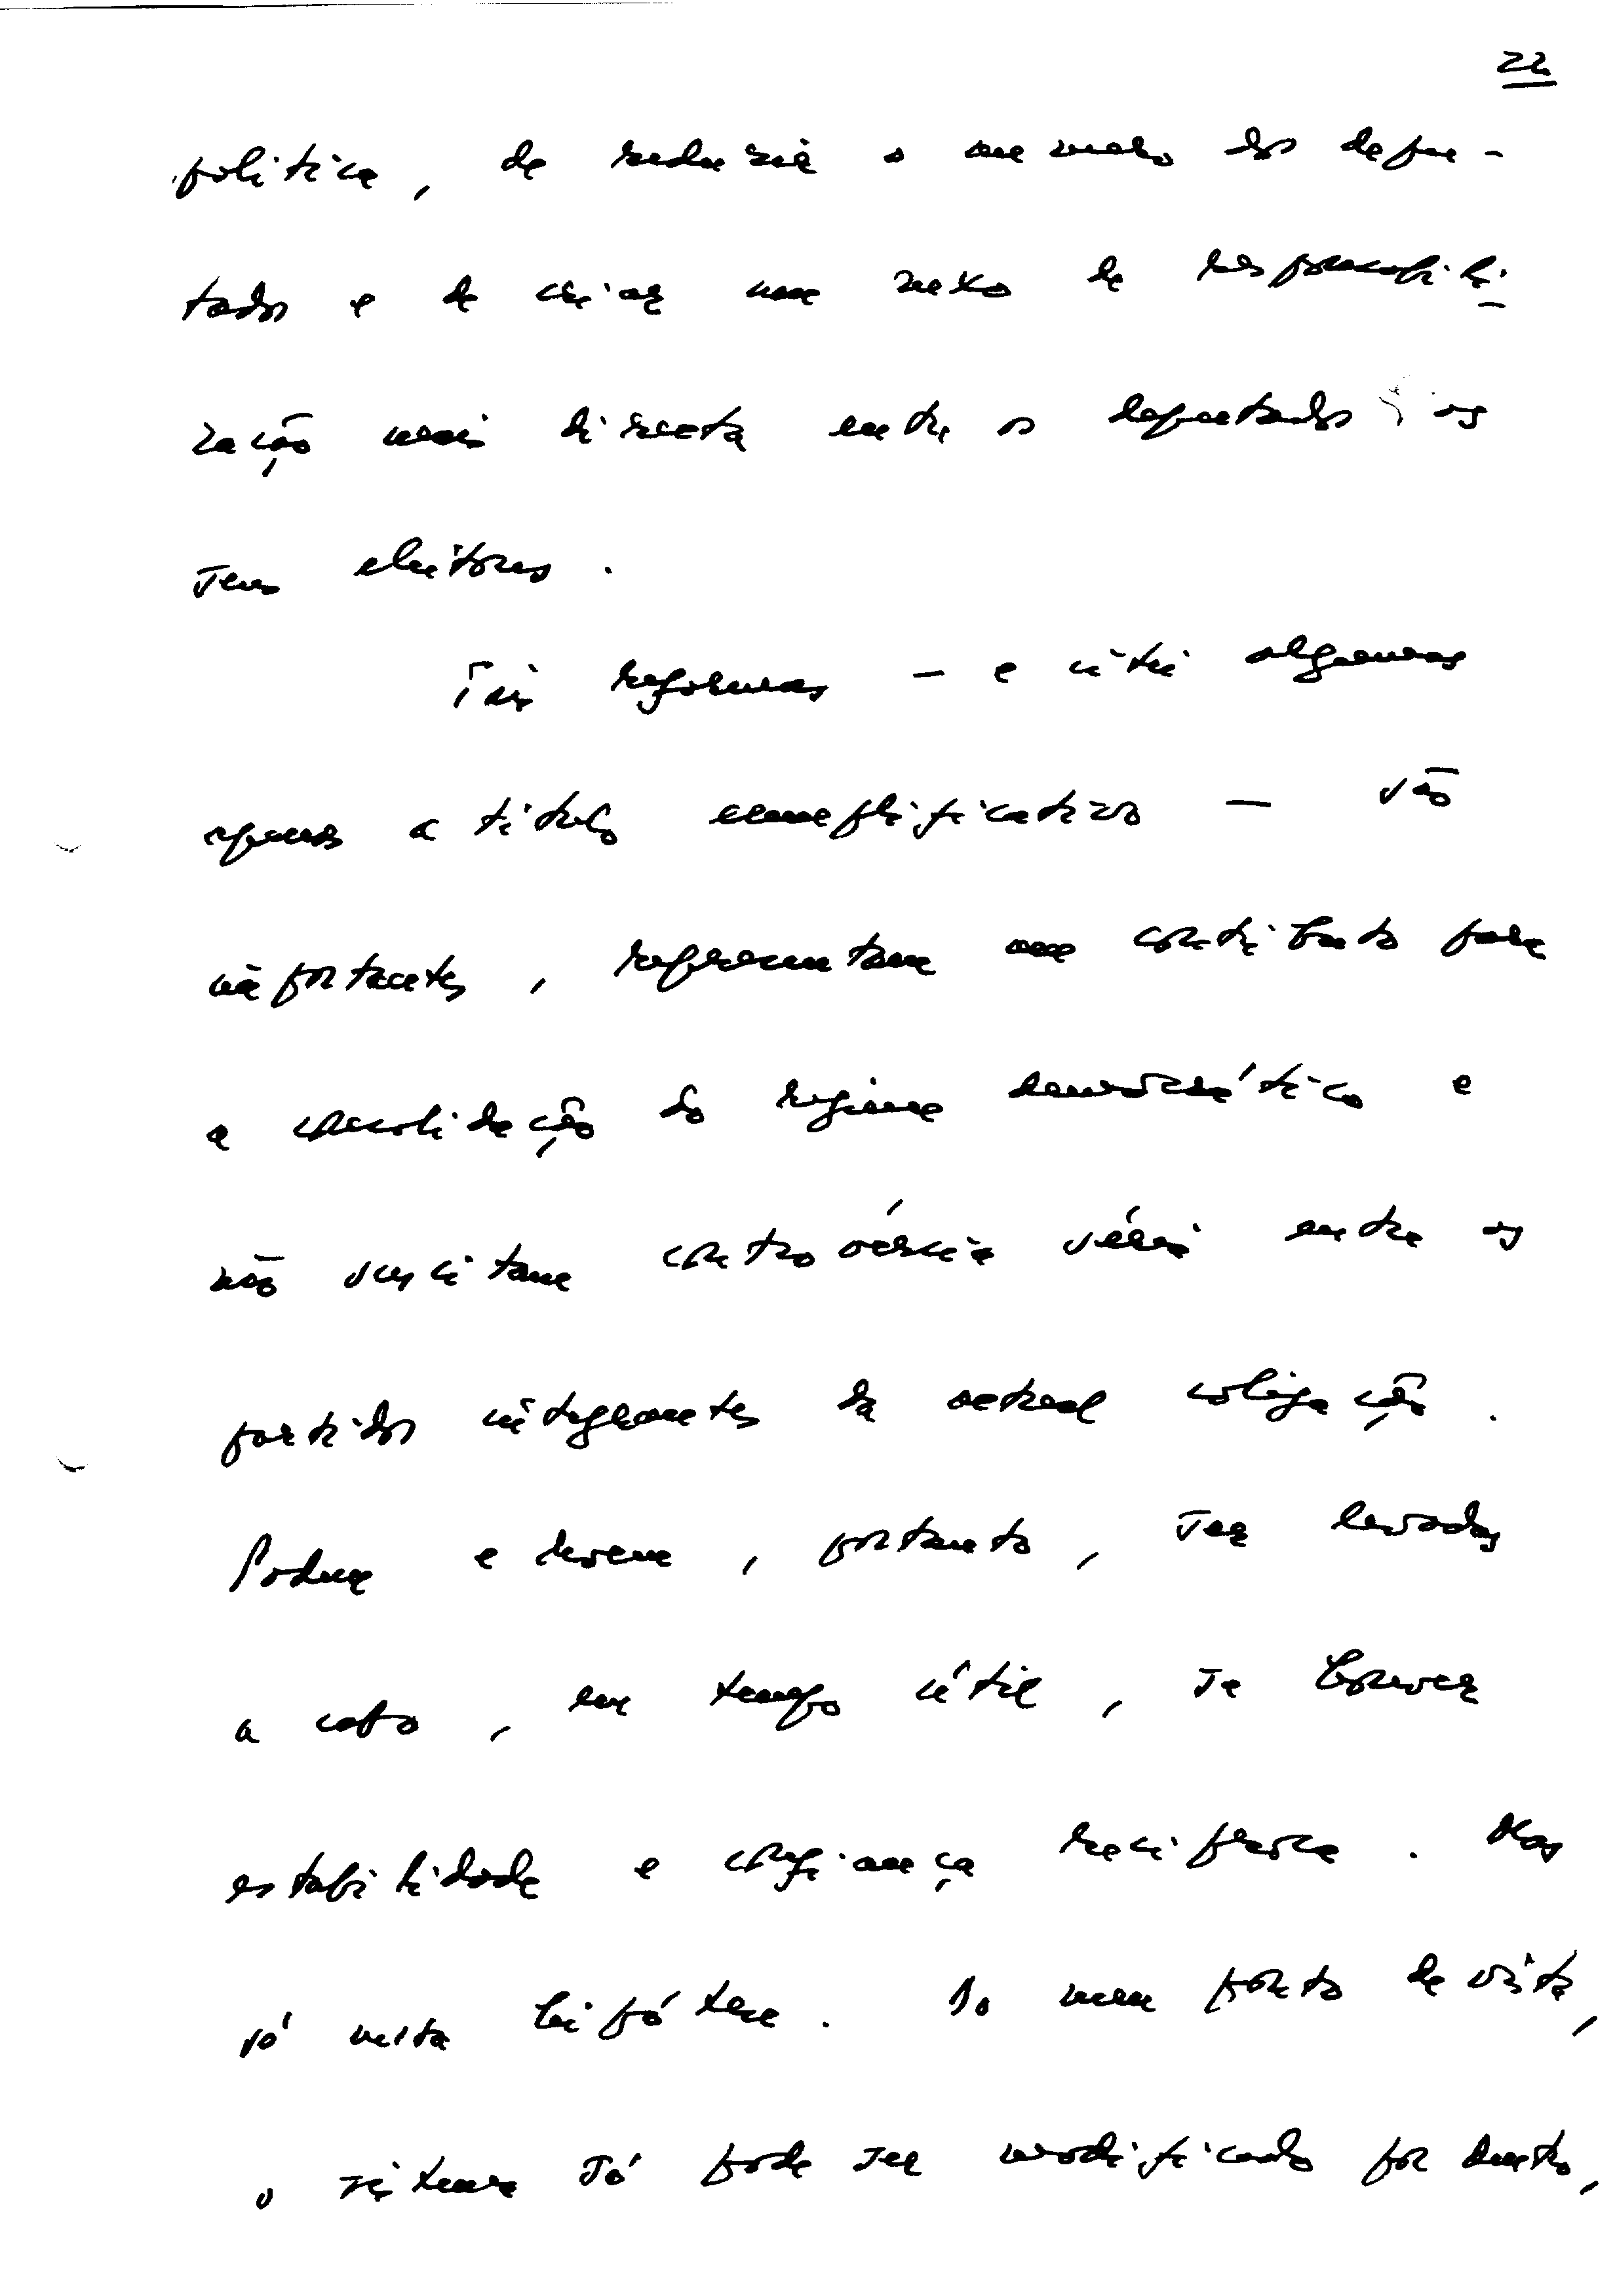 22
política, de reduzir o número dos depu-
tados e de criar um nexo de responsabili-
zação mais directa entre os deputados e os
seus eleitores.
Tais reformas — e citei algumas
apenas a título exemplificativo — são
importantes, representam um contributo para
a consolidação do regime democrático e
não suscitam controvérsia séria entre os
partidos integrantes da actual coligação.
Podem e devem, portanto, ser levadas
a cabo, em tempo útil, se houver
estabilidade e confiança recíproca. Mas
só nesta hipótese. Do meu ponto de vista,
o sistema só pode ser modificado por dentro,